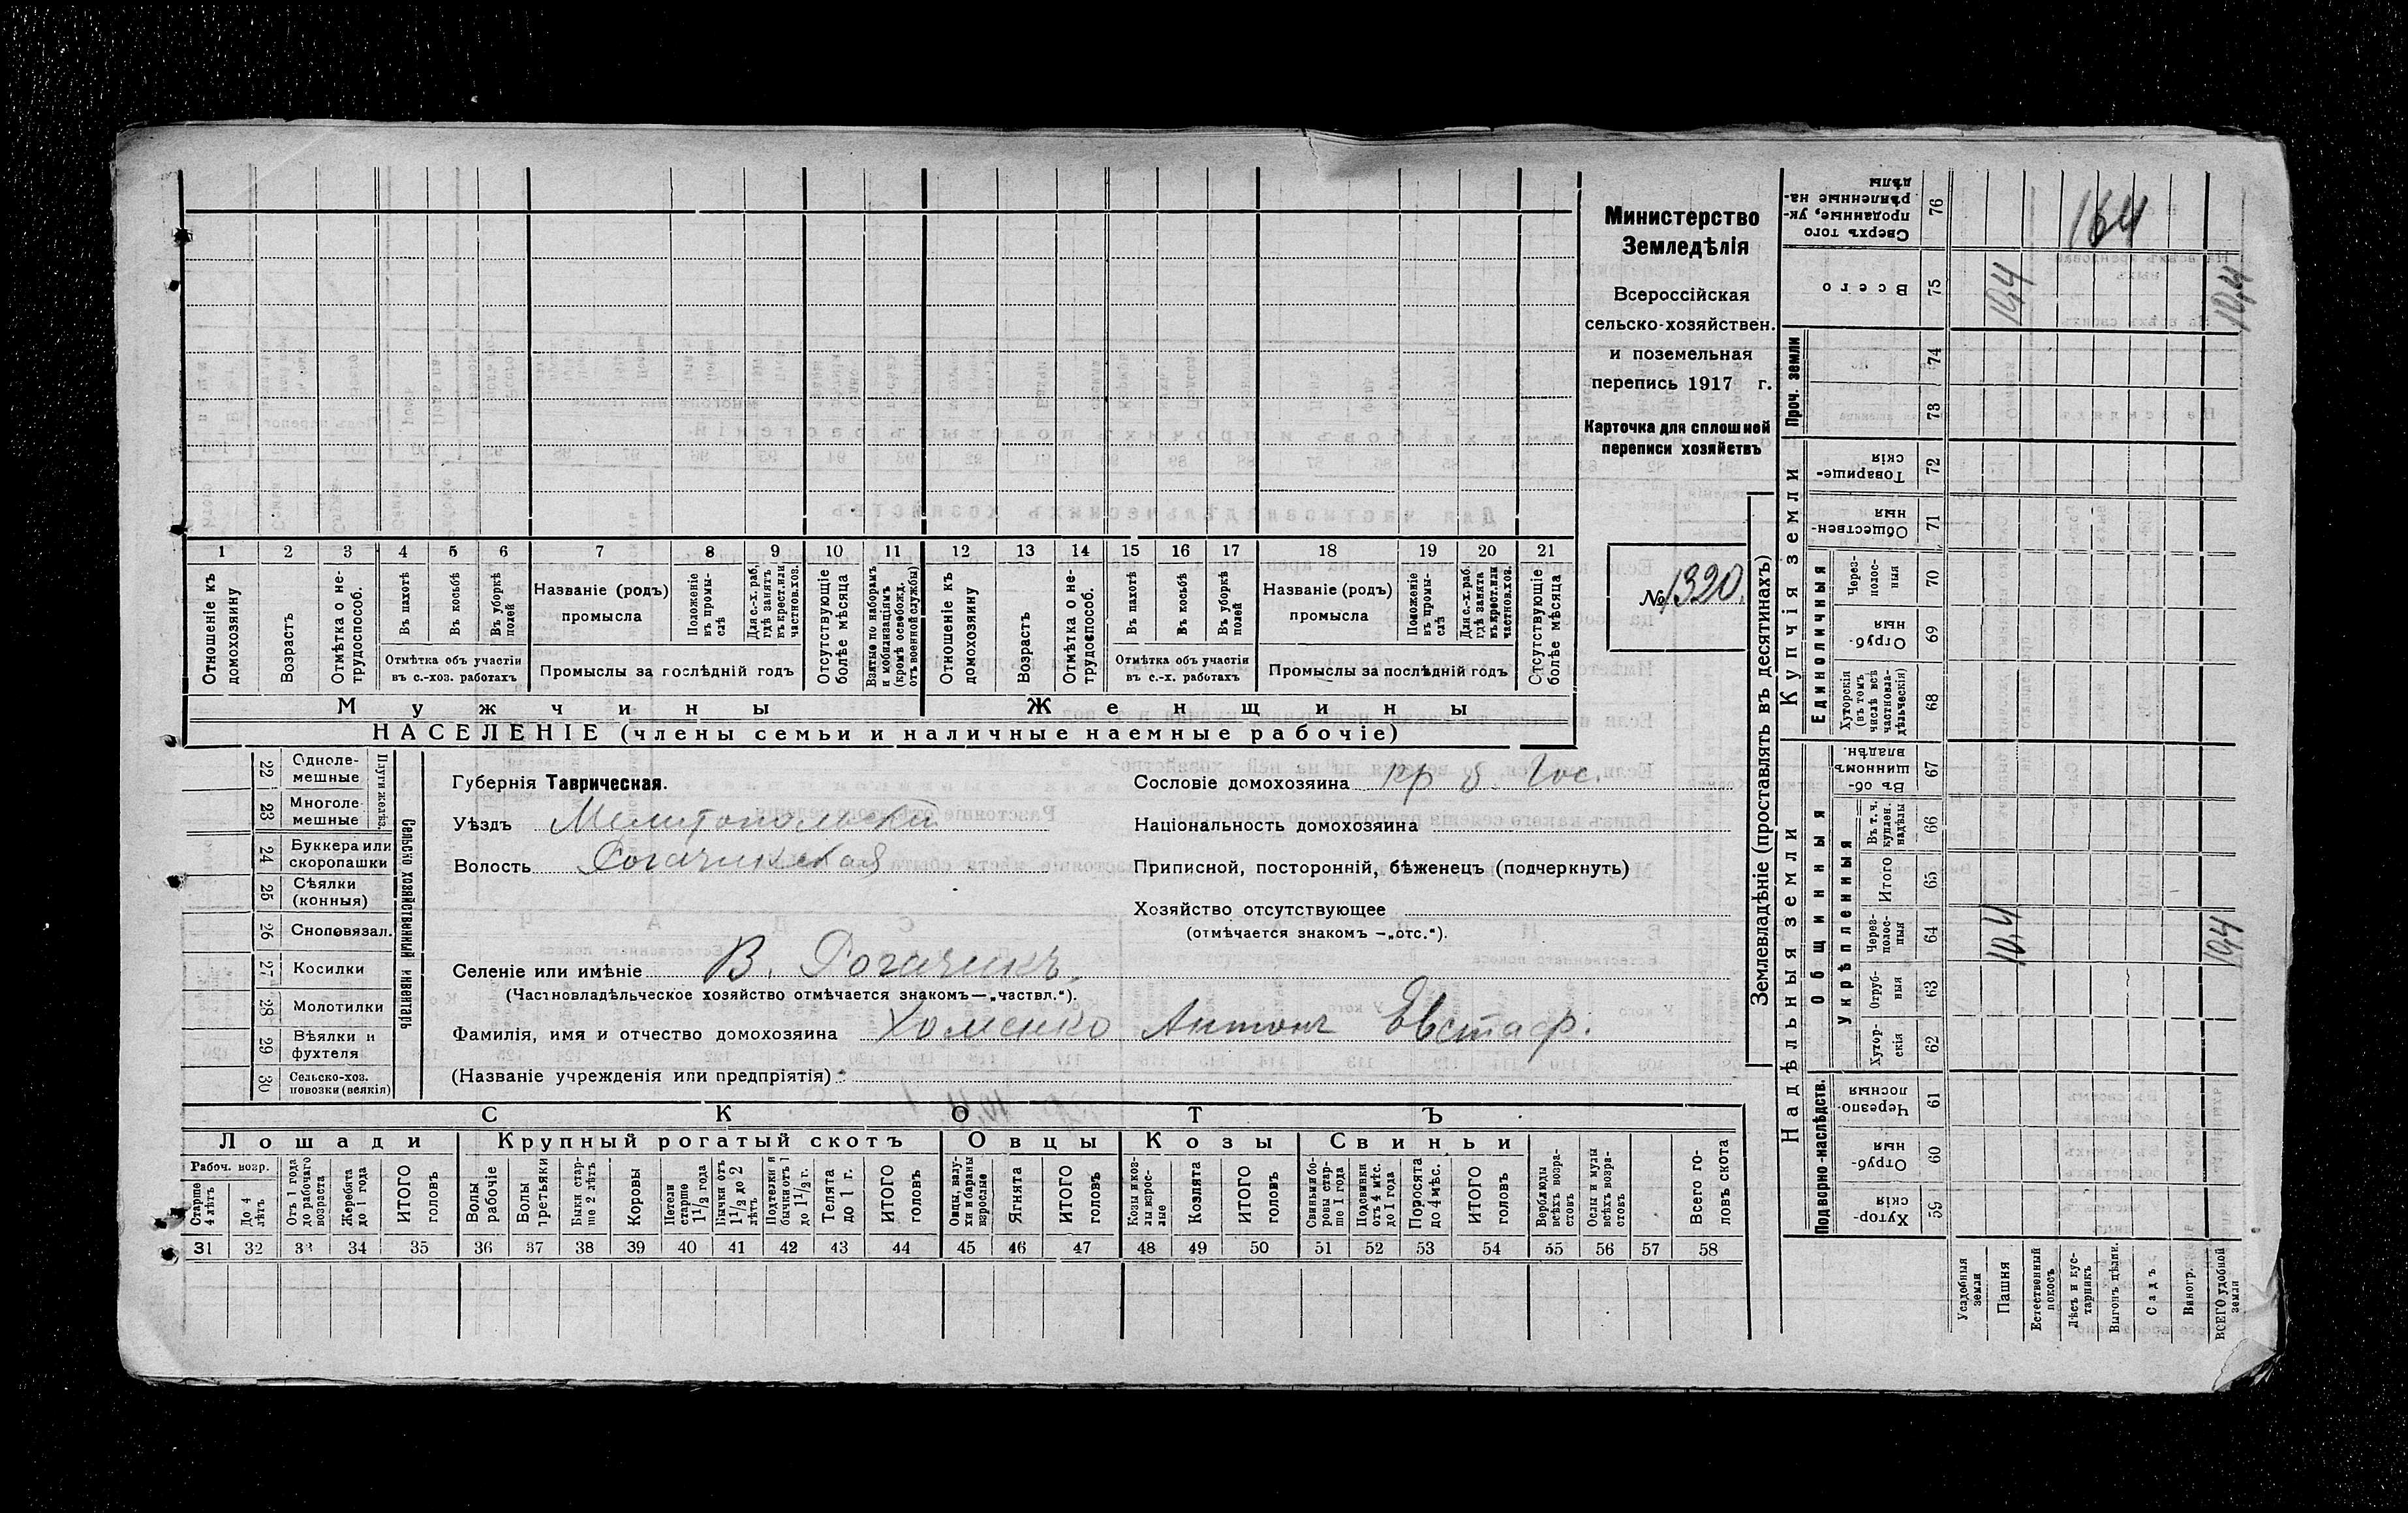 Министерство
Земледѣлія
Всероссійская
сельско-хозяйствен.
и поземельная
перепись 1917 г.
Карточка для сплошной
переписи хозяйствъ
№ 1320.
1 2 3 4 5 6 7 8 9 10 11 12 13 14 15 16 17 18 19 20 21
Отношеніе къ домохозяину
Возрастъ
Отмѣтка о не-трудоспособ.
Въ пахотѣ
Въ косьбѣ
Въ уборкѣ полей
Отмѣтка объ участіи въ с.-хоз. работахъ
Названіе (родъ) промысла
Положеніе въ промы-слѣ
Для с.-х. раб. гдѣ занятъ въ крест. или частнов. хоз.
Промыслы за послѣдній годъ
Отсутствующіе болѣе мѣсяца
Взятые по наборамъ и мобилизаціямъ (кромѣ освобожд. отъ военной службы)
Отношеніе къ домохозяину
Возрастъ
Отмѣтка о не-трудоспособ.
Въ пахотѣ
Въ косьбѣ
Въ уборкѣ полей
Отмѣтка объ участіи въ с.-х. работахъ
Названіе (родъ) промысла
Положеніе въ промы-слѣ
Для с.-х. раб. гдѣ занята въ крест. или частнов. хоз.
Промыслы за послѣдній годъ
Отсутствующіе болѣе мѣсяца
Мужчины Женщины
НАСЕЛЕНІЕ (члены семьи и наличные наемные рабочіе)
Сельско хозяйственный инвентарь
Плуги желѣз.
22 Одноле-мешные
23 Многоле-мешные
24 Буккера или скоропашки
25 Сѣялки (конныя)
26 Сноповязал.
27 Косилки
28 Молотилки
29 Вѣялки и фухтеля
30 Сельско-хоз. повозки (всякія)
Губернія Таврическая.
Уѣздъ Мелитопольскій
Волость Рогачикская
Селеніе или имѣніе В. Рогачикъ.
(Частновладѣльческое хозяйство отмѣчается знакомъ—„частвл.“).
Фамилія, имя и отчество домохозяина Хоменко Антонъ Евстаф.
(Названіе учрежденія или предпріятія)
Сословіе домохозяина кр б. Гос.
Національность домохозяина
Приписной, посторонній, бѣженецъ (подчеркнуть)
Хозяйство отсутствующее
(отмѣчается знакомъ —„отс.“).
СКОТЪ
Лошади Крупный рогатый скотъ Овцы Козы Свиньи
Рабоч. возр.
Старше 4 лѣтъ
До 4 лѣтъ
Отъ 1 года до рабочаго возраста
Жеребята до 1 года
ИТОГО головъ
Волы рабочіе
Волы третьяки
Быки стар-ше 2 лѣтъ
Коровы
Нетели старше 1 1/2 года
Бычки отъ 1 1/2 до 2 лѣтъ
Подтелки и бычки отъ 1 до 1 1/2 г.
Телята до 1 г.
ИТОГО головъ
Овцы, валу-хи и бараны взрослые
Ягнята
ИТОГО головъ
Козы и коз-лы взрос-лые
Козлята
ИТОГО головъ
Свиньи и бо-ровы стар-ше 1 года
Подсвинки отъ 4 мѣс. до 1 года
Поросята до 4 мѣс.
ИТОГО головъ
Верблюды всѣхъ возра-стовъ
Ослы и мулы всѣхъ возра-стовъ
Всего го-ловъ скота
31 32 33 34 35 36 37 38 39 40 41 42 43 44 45 46 47 48 49 50 51 52 53 54 55 56 57 58
Землевладѣніе (проставлять въ десятинахъ)
Надѣльныя земли Купчія земли Проч. земли
Подворно-наслѣдств. Общинныя Единоличныя
Укрѣпленныя
Сверхъ того проданные, ук-рѣпленные на-дѣлы 76
Всего 75
74
73
Товарище-скія 72
Обществен-ныя 71
Через-полос-ныя 70
Отруб-ныя 69
Хуторскія (въ томъ числѣ всѣ частновла-дѣльческія) 68
Въ об-щинномъ владѣн. 67
Въ т. ч. куплен. надѣлы 66
Итого 65
Через-полос-ныя 64
Отруб-ныя 63
Хутор-скія 62
Черезпо-лосныя 61
Отруб-ныя 60
Хутор-скія 59
Усадебныя земли
Пашня
Естественный покосъ
Лѣсъ и кус-тарникъ
Выгонъ цѣлин.
Садъ
Виногр.
ВСЕГО удобной земли
164
10,4
10,4
10,4
10,4